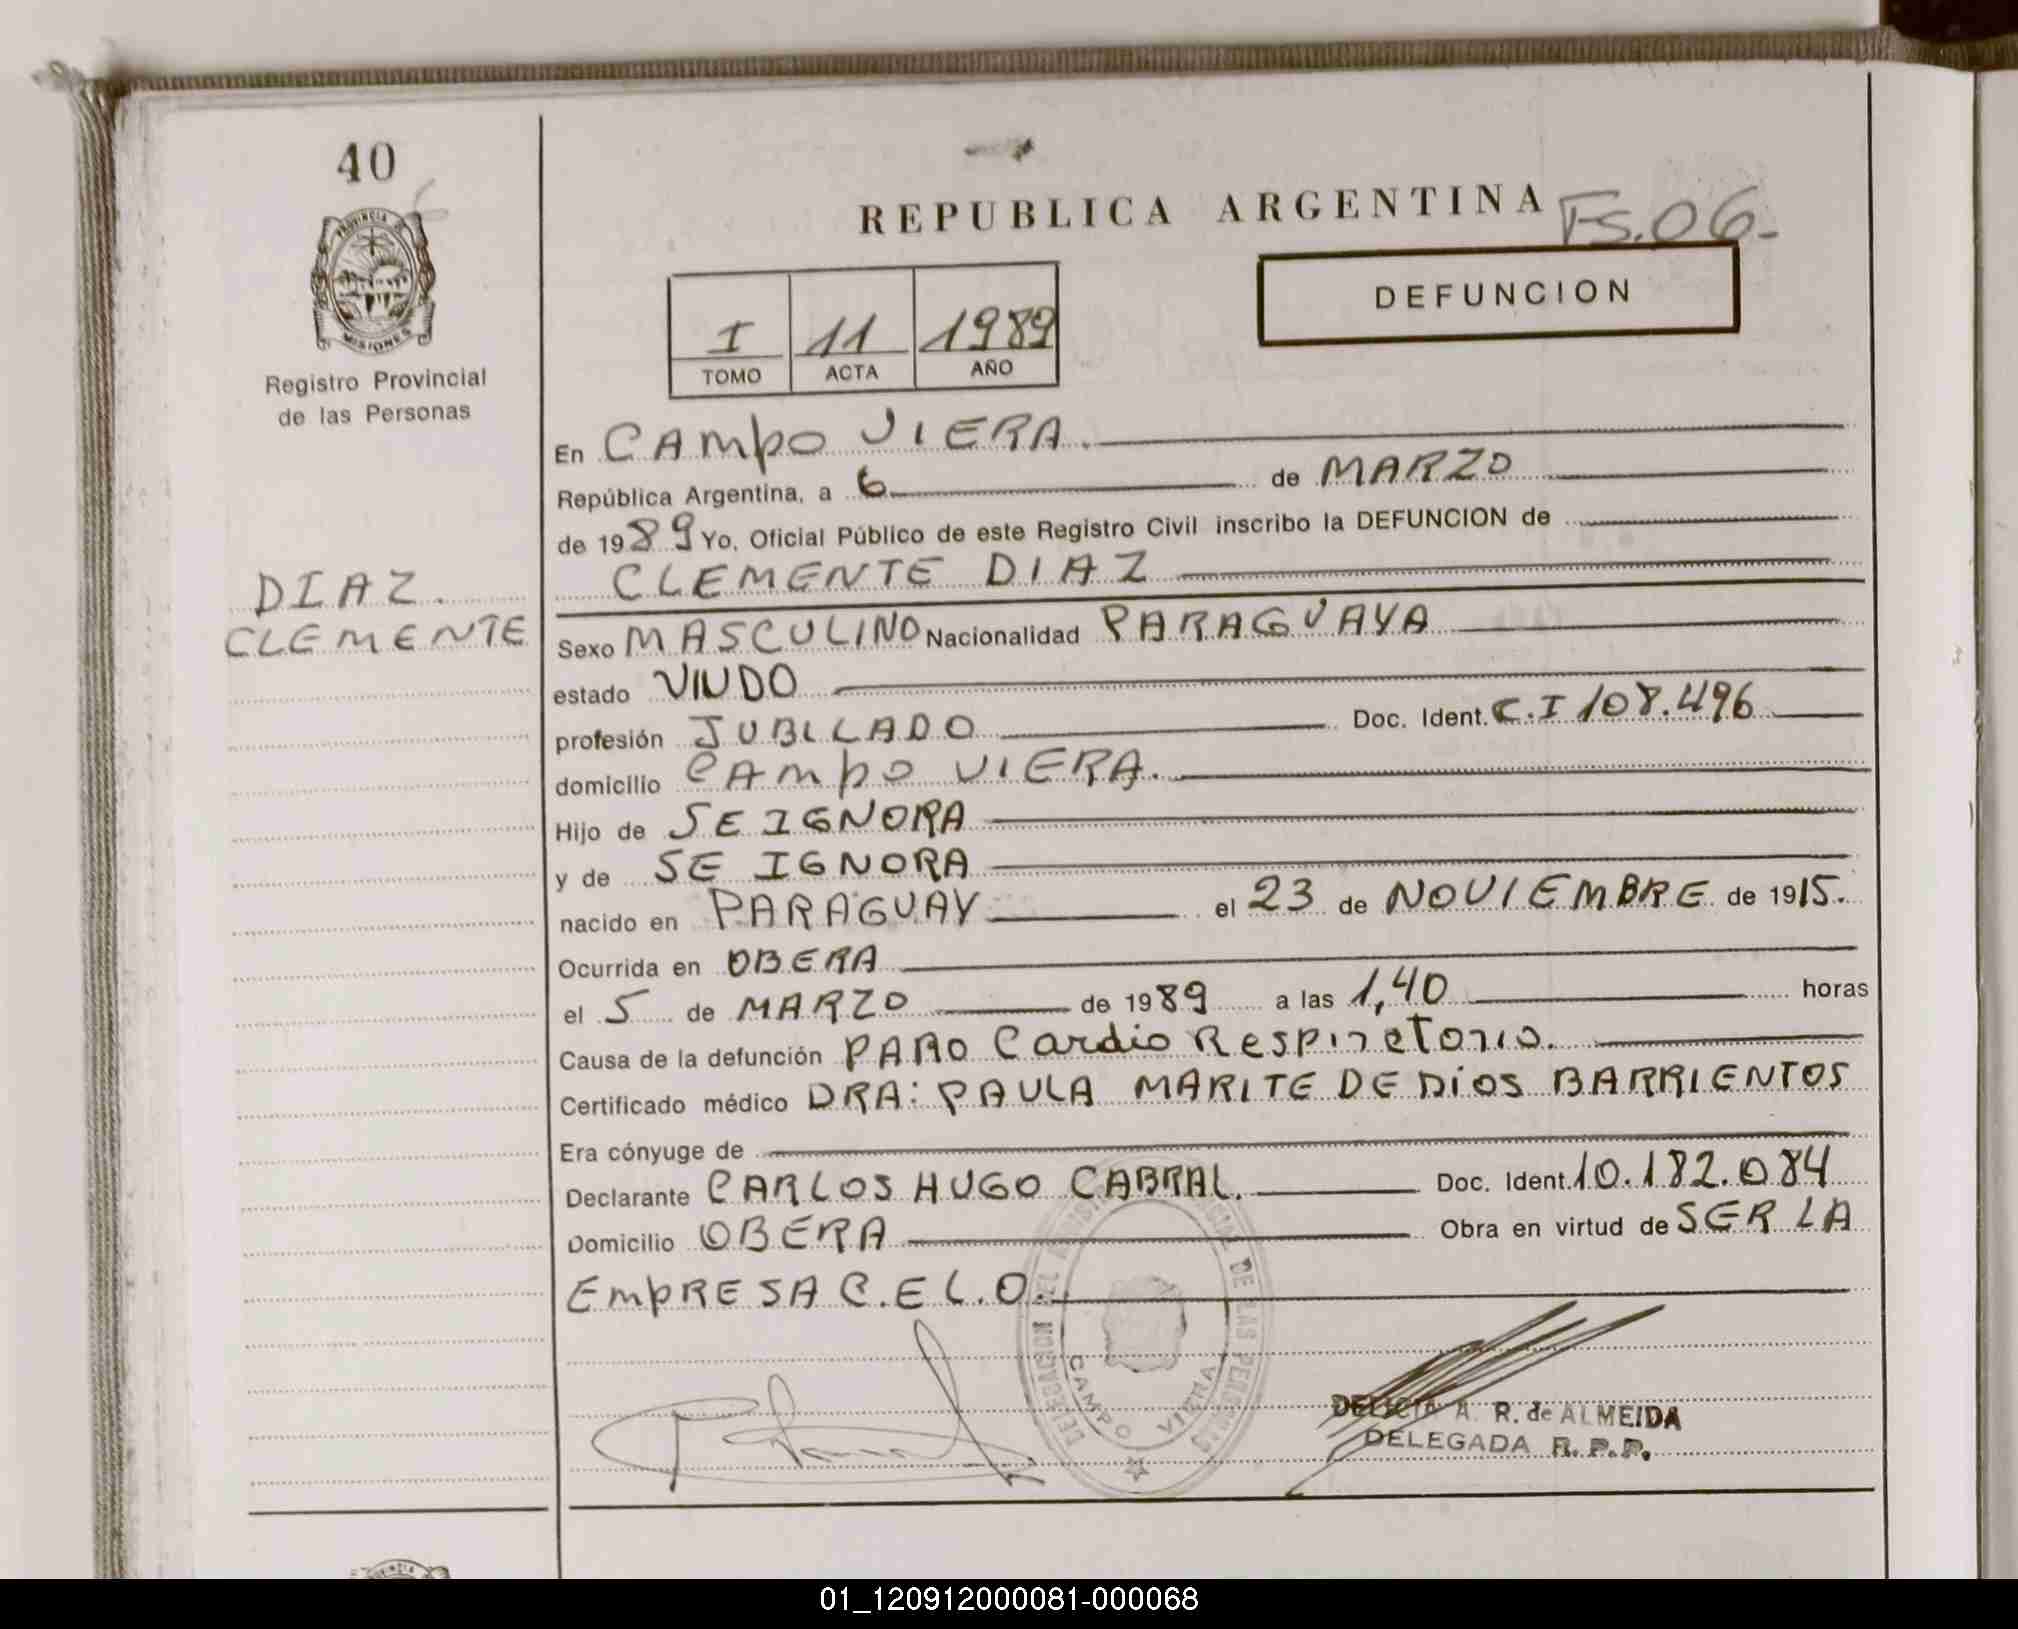 40
PROVINCIA DE
MISIONES
Registro Provincial
de las Personas
DIAZ.
CLEMENTE
REPUBLICA ARGENTINA
Fs.06.-
DEFUNCION
I 11 1989
TOMO ACTA AÑO
En CAMPO VIERA.
República Argentina, a 6 de MARZO
de 1989 Yo, Oficial Público de este Registro Civil inscribo la DEFUNCION de
CLEMENTE DIAZ
Sexo MASCULINO Nacionalidad PARAGUAYA
estado VIUDO
profesión JUBILADO Doc. Ident. C.I 108.496
domicilio CAMPO VIERA.
Hijo de SE IGNORA
y de SE IGNORA
nacido en PARAGUAY el 23 de NOVIEMBRE de 1915.
Ocurrida en OBERA
el 5 de MARZO de 1989 a las 1,40 horas
Causa de la defunción PARO Cardio Respiratorio.
Certificado médico DRA: PAULA MARITE DE DIOS BARRIENTOS
Era cónyuge de
Declarante CARLOS HUGO CABRAL. Doc. Ident. 10.182.084
Domicilio OBERA Obra en virtud de SER LA
EMPRESA C.E.L.O.
CAMPO VIERA
DELICIA A. R. de ALMEIDA
DELEGADA R.P.P.
01_120912000081-000068